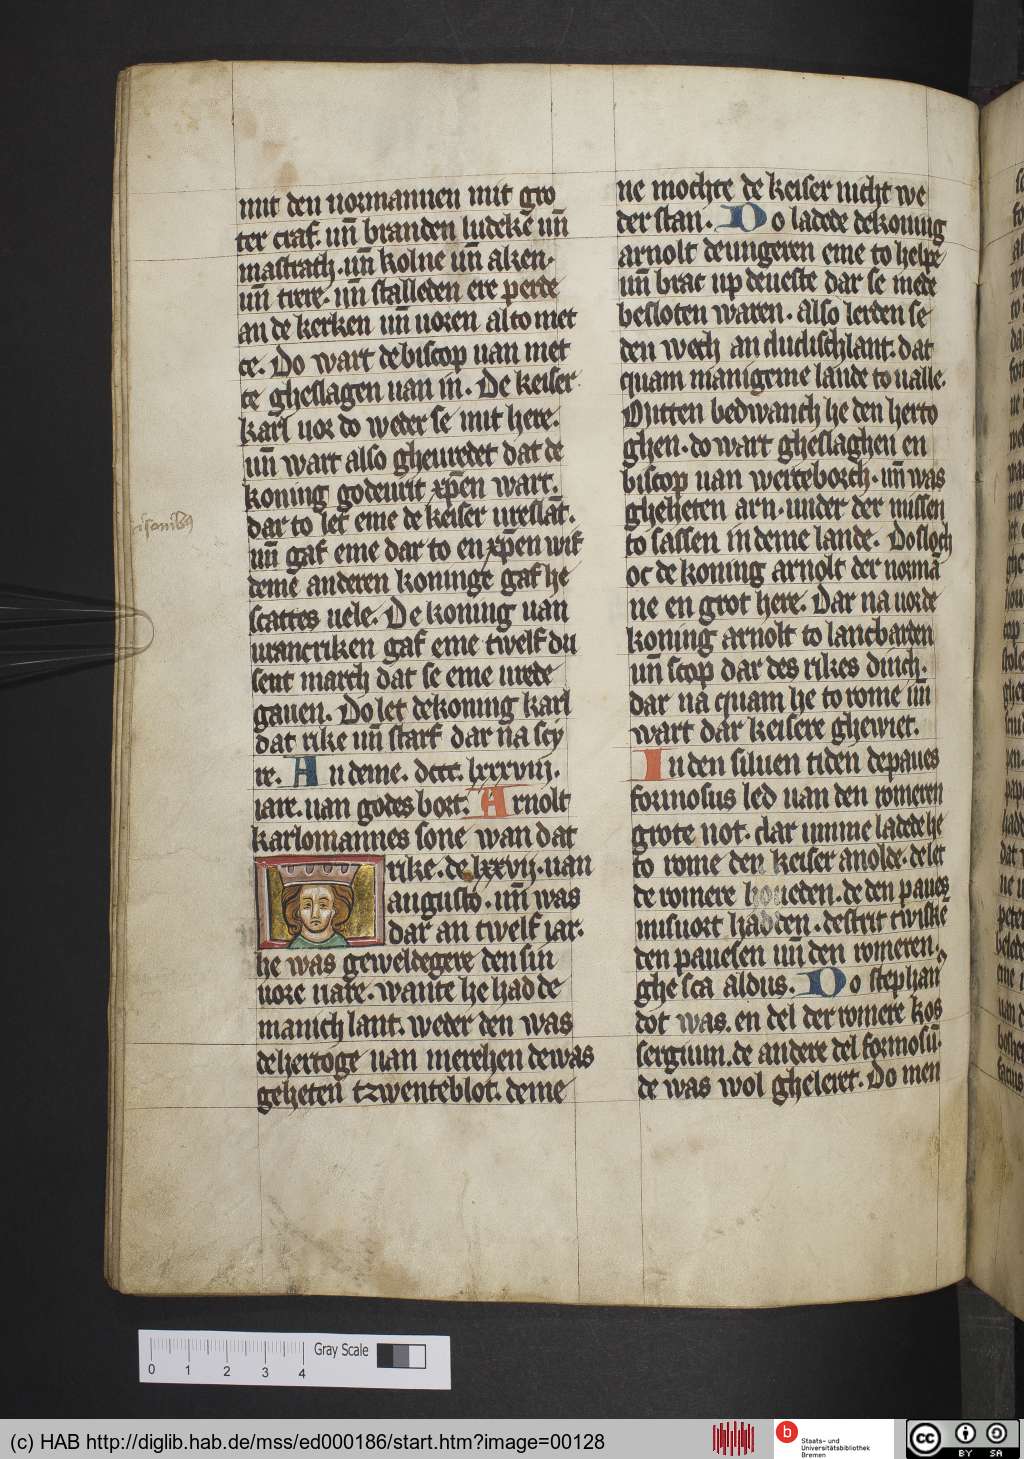 mit den normannen mit gro
ter craf. uñ branden ludekē uñ
mastrach. uñ kolne uñ aken.
uñ trere. uñ stalleden ere perde
an de kerken uñ uoren al to met
ce. Do wart de biscop uan met
ce gheslagen uan in. De keiser
karl uor do weder se mit here.
uñ wart also gheuredet dat de
koning godeurit xp̄en wart.
dar to let eme de keiser ureslāt.
uñ gaf eme dar to en xp̄en wif
demē anderen koninge gaf he
scattes uele. De koning uan
urancriken gaf eme twelf du
sent march dat se eme urede
gauen. Do let de koning karl
dat rike uñ starf dar na sci
re. An deme. dccc. lxxxviij.
iare. uan godes bort. Arnolt
karlomannes sone wan dat
rike. de lxxvij. uan
augusto. uñ was
dar an twelf iar.
he was geweldegere den sin
uore uare. wante he hadde
manich lant. weder den was
de hertoge uan merehen de was
geheten tzwenteblot. deme
ne mochte de keiser nicht we
der stan. Do ladede de koning
arnolt de ungeren eme to helpe
uñ brac up de ueste dar se mede
besloten waren. also lerden se
den wech an dudisch lant. dat
quam manigeme lande to ualle.
Mitten bedwanch he den herto
ghen. do wart gheslaghen en
biscop uan werteborch. uñ was
gheheten arn. under der missen
to sassen in deme lande. Do sloch
oc de koning arnolt der normā
ne en grot here. Dar na uor de
koning arnolt to lancbarden
uñ scop dar des rikes dinch.
dar na quam he to rome uñ
wart dar keisere ghewiet.
In den siluen tiden de paues
formosus led uan den romeren
grote not. dar umme ladede he
to rome den keiser anolde. de let
de romere houeden. de den paues
misuort hadden. de strit twiskē
den pauesen uñ den romeren.
ghe sca aldus. Do stephan
dot was. en del der romere kos
sergium. de andere del formosū.
de was wol gheleret. Do men
Gray Scale
0 1 2 3 4
(c) HAB http://diglib.hab.de/mss/ed000186/start.htm?image=00128
b
Staats- und
Universitätsbibliothek
Bremen
cc
BY SA